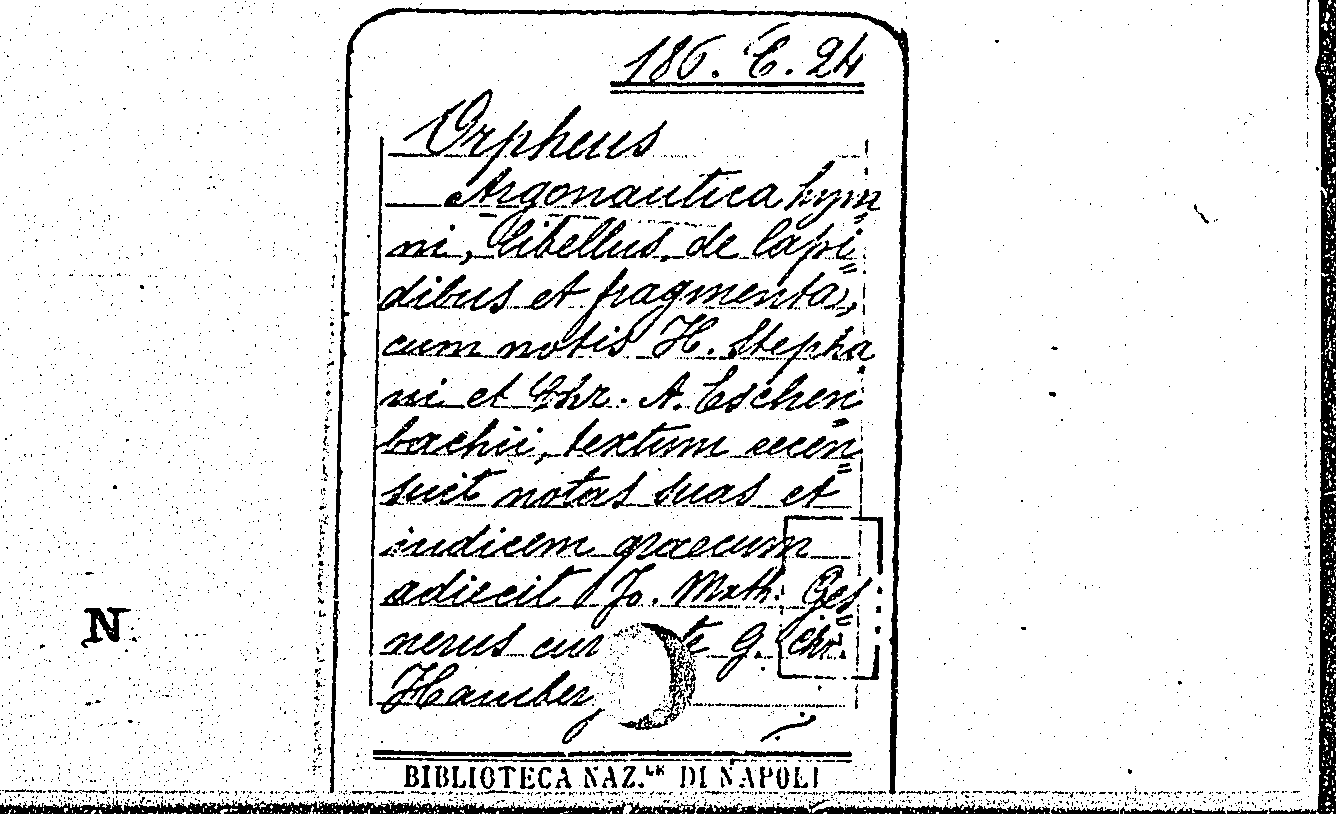 186. E. 24
Orpheus
Argonautica hym=
ni, libellus de lapi=
dibus et fragmenta,
cum notis H. Stepha
ni et Chr. A. Eschen=
bachii, textum recen=
suit notas suas et
indicem graecum
adiecit Jo. Math. Ges=
nerus cur te G. Chr.
Hamber
N
BIBLIOTECA NAZ.LE DI NAPOLI